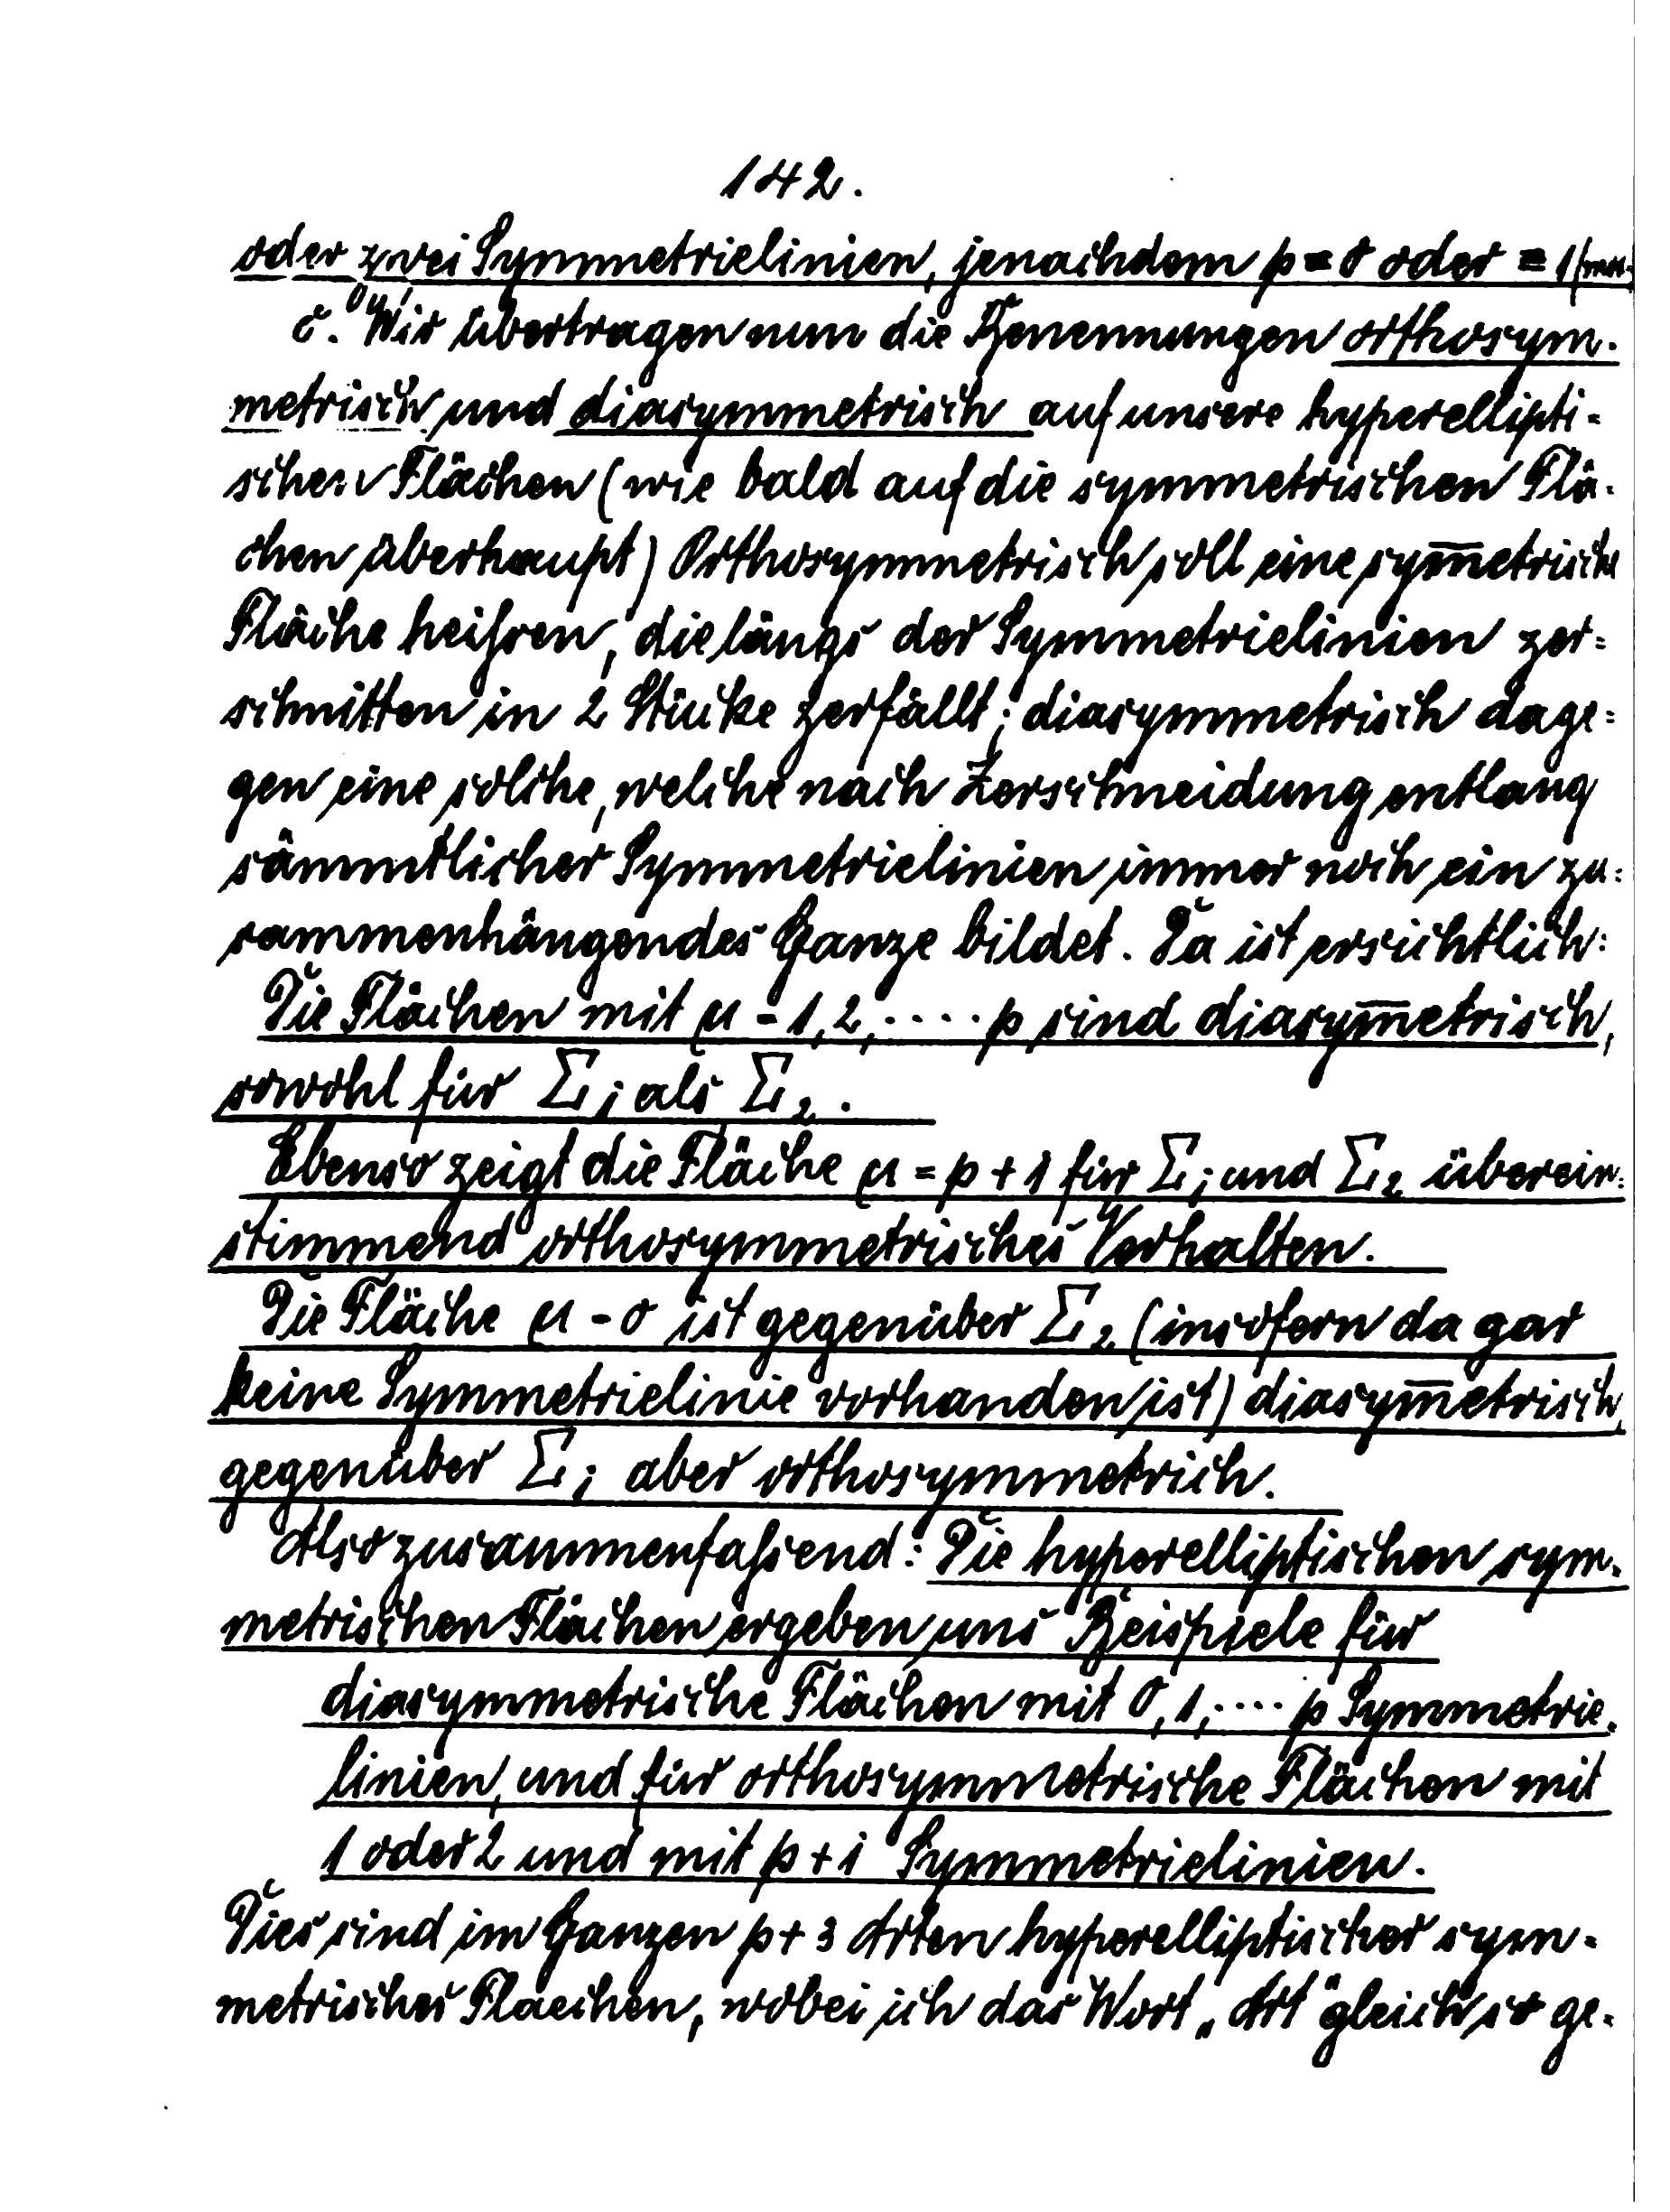 142.
oder zwei Symmetrielinien, jenachdem p ≡ 0 oder ≡ 1 (mod.
c. Wir übertragen nun die Benennungen orthosym-
metrisch und diasymmetrisch auf unsere hyperellipti-
schen Flächen (wie bald auf die symmetrischen Flä-
chen überhaupt) Orthosymmetrisch soll eine sym̅etrische
Fläche heißen, die längs der Symmetrielinien zer-
schnitten in 2 Stücke zerfällt; diasymmetrisch dage-
gen eine solche, welche nach Zerschneidung entlang
sämmtlicher Symmetrielinien immer noch ein zu-
sammenhängendes Ganze bildet. Da ist ersichtlich:
Die Flächen mit μ = 1, 2, .... p sind diasym̅etrisch,
sowohl für Σ₁ als Σ₂.
Ebenso zeigt die Fläche μ = p + 1 für Σ₁ und Σ₂ überein-
stimmend orthosymmetrisches Verhalten.
Die Fläche μ = 0 ist gegenüber Σ₂ (insofern da gar
keine Symmetrielinie vorhanden ist) diasym̅etrisch,
gegenüber Σ₁ aber orthosymmetrich.
Also zusammenfaßend: Die hyperelliptischen sym-
metrischen Flächen ergeben uns Beispiele für
diasymmetrische Flächen mit 0, 1, .... p Symmetrie-
linien, und für orthosymmetrische Flächen mit
1 oder 2 und mit p + 1 Symmetrielinien.
Dies sind im Ganzen p + 3 Arten hyperelliptischer sym-
metrischer Flaechen, wobei ich das Wort „Art" gleich so ge-